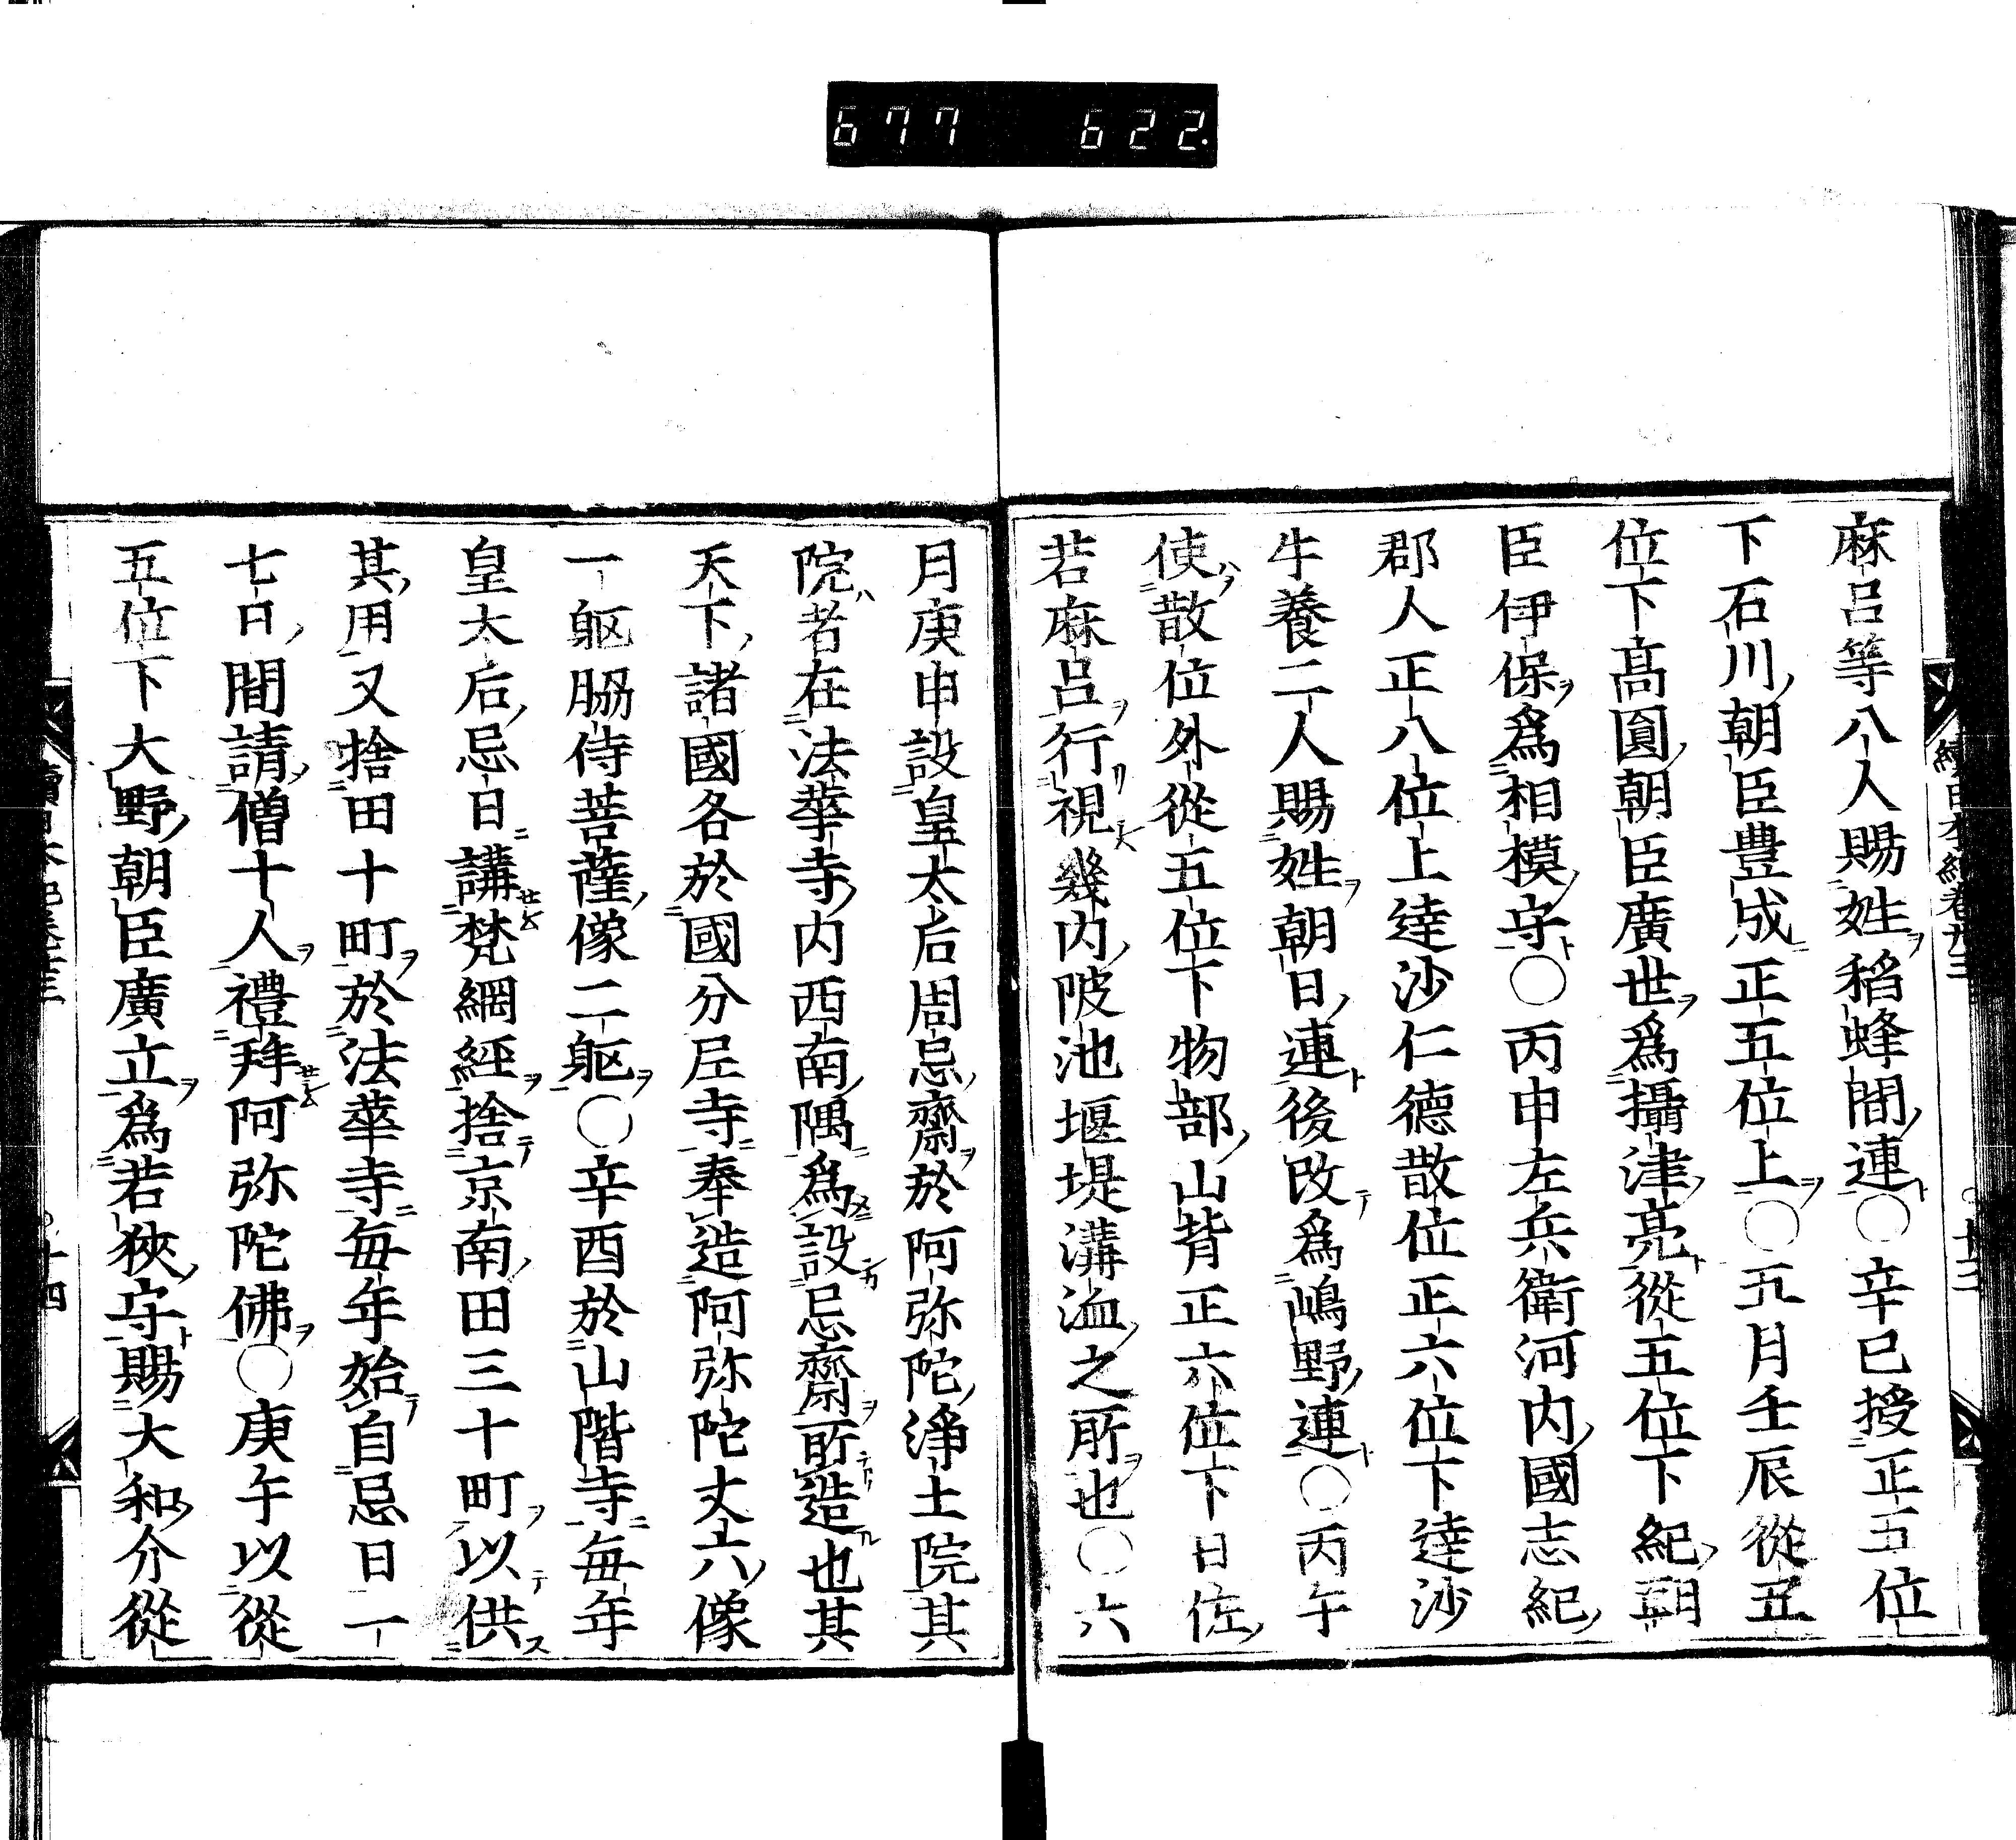 677 622.
麻呂等八人賜姓稻蜂間連○辛巳授正五位
下石川朝臣豊成正五位上○五月壬辰從五
位下高圓朝臣廣世爲攝津亮從五位下紀朝
臣伊保爲相模守○丙申左兵衛河内國志紀
郡人正八位上達沙仁德散位正六位下達沙
牛養二人賜姓朝日連後改爲嶋野連○丙午
使散位外從五位下物部山背正六位下日佐
若麻呂行視幾内陂池堰堤溝洫之所也○六
月庚申設皇太后周忌齋於阿弥陀淨土院其
院者在法華寺内西南隅爲設忌齋所造也其
天下諸國各於國分尼寺奉造阿弥陀丈六像
一躯脇侍菩薩像二躯○辛酉於山階寺毎年
皇太后忌日講梵網經捨京南田三十町以供
其用又捨田十町於法華寺毎年始自忌日一
七日間請僧十人禮拜阿弥陀佛○庚午以從
五位下大野朝臣廣立爲若狹守賜大和介從